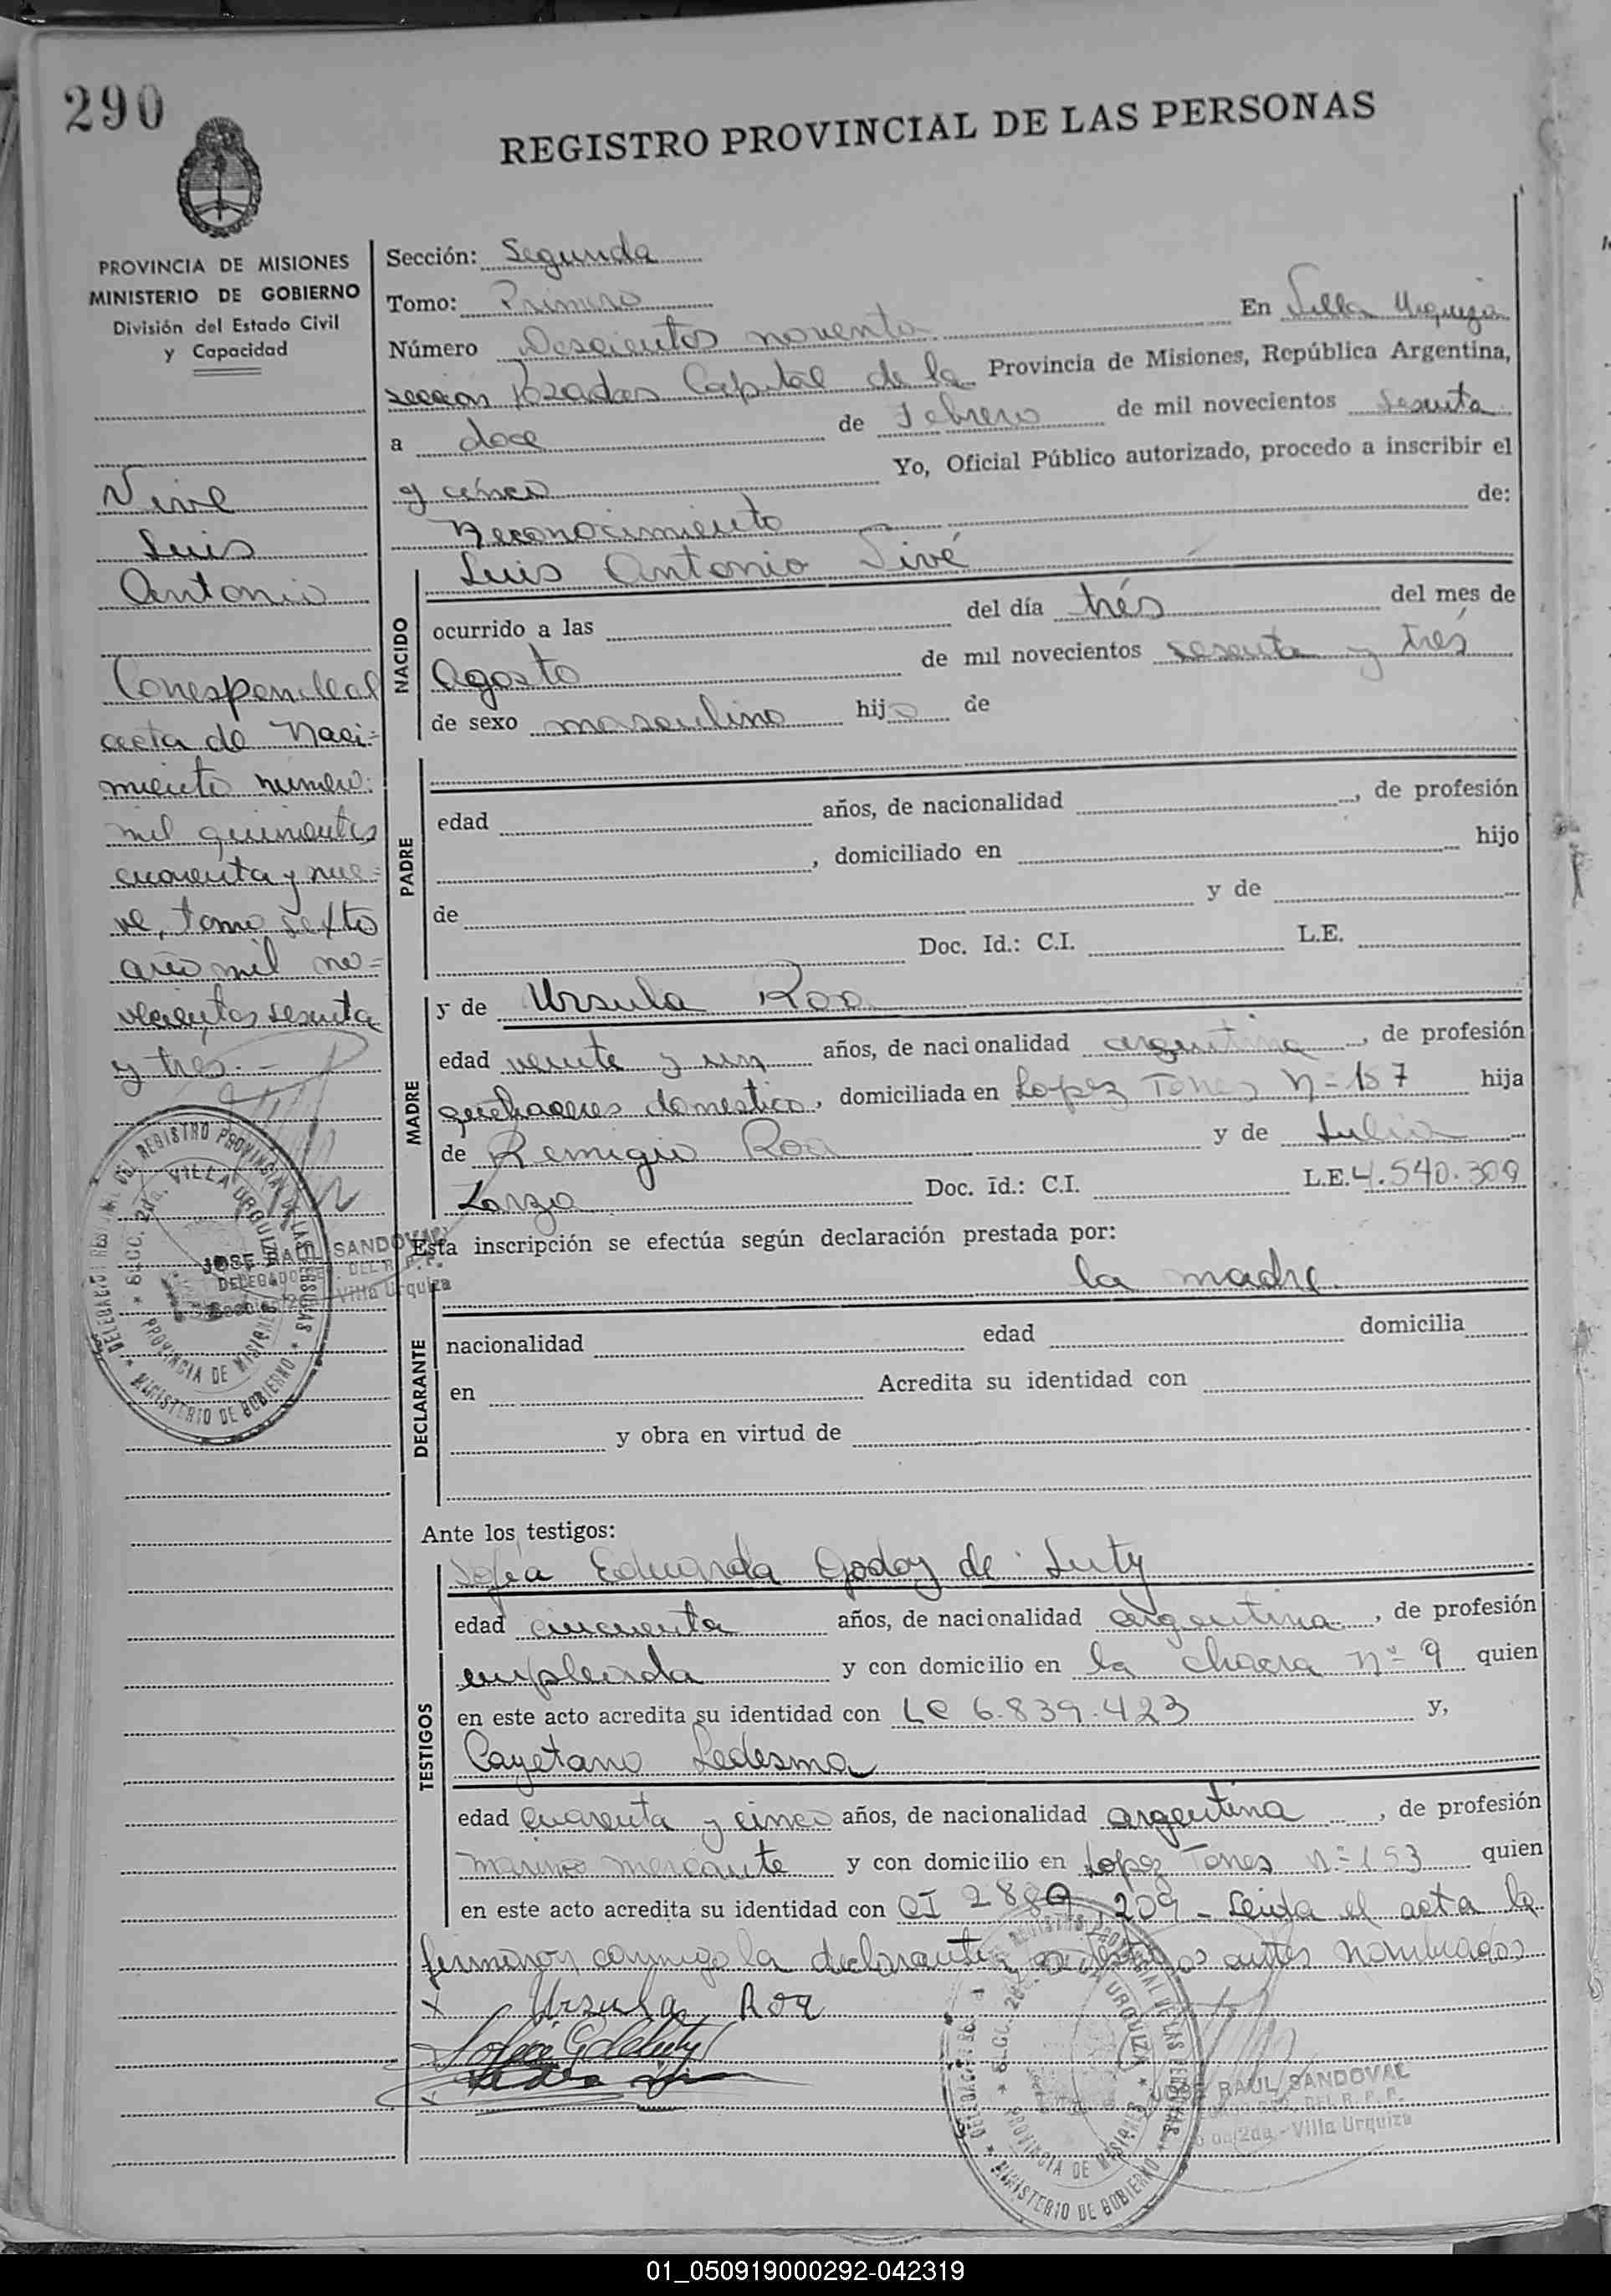 290
REGISTRO PROVINCIAL DE LAS PERSONAS
PROVINCIA DE MISIONES
MINISTERIO DE GOBIERNO
División del Estado Civil
y Capacidad
Luis
Antonio
Corresponde al
acta de Naci=
miento número
mil quinientos
cuarenta y nue=
ve, tomo sexto
año mil no=
vecientos sesenta
y tres.-
Sección: Segunda
Tomo: Primero
Número Doscientos noventa En Villa Urquiza
sección Pozadas Capital de la Provincia de Misiones, República Argentina,
a doce de Febrero de mil novecientos sesenta
y cinco Yo, Oficial Público autorizado, procedo a inscribir el
Reconocimiento de:
NACIDO
Luis Antonio
ocurrido a las del día trés del mes de
Agosto de mil novecientos sesenta y trés
de sexo masculino hijo de
PADRE
edad años, de nacionalidad , de profesión
, domiciliado en hijo
de y de
Doc. Id.: C.I. L.E.
MADRE
y de Ursula Roa
edad veinte y un años, de nacionalidad argentina, de profesión
quehaceres domestico, domiciliada en Lopez Torres N=157 hija
de Remigio Roa y de Julia
Doc. Id.: C.I. L.E. 4.540.309
Esta inscripción se efectúa según declaración prestada por:
la madre
DECLARANTE
nacionalidad edad domicilia
en Acredita su identidad con
y obra en virtud de
Ante los testigos:
TESTIGOS
Sofia Eduarda Godoy de Luty
edad cincuenta años, de nacionalidad argentina, de profesión
empleada y con domicilio en la chacra nº 9 quien
en este acto acredita su identidad con LC 6.839.423 y,
Cayetano Ledesma
edad cuarenta y cinco años, de nacionalidad argentina, de profesión
marino mercante y con domicilio en Lopez Torres nº 193 quien
en este acto acredita su identidad con CI 209 - Leida el acta la
firmaron conmigo la declarante antes nombrados
x Ursula Roa
DELEGADO REG. DEL REGISTRO PROVINCIAL DE LAS PERSONAS
* SECC. 2da. VILLA URQUIZA *
PROVINCIA DE MISIONES
* MINISTERIO DE GOBIERNO *
JOSE RAUL SANDOVAL
Villa Urquiza
* SECC. 2da. VILLA URQUIZA *
PROVINCIA DE MISIONES
* MINISTERIO DE GOBIERNO *
JOSE RAUL SANDOVAL
2da.-Villa Urquiza
01_050919000292-042319